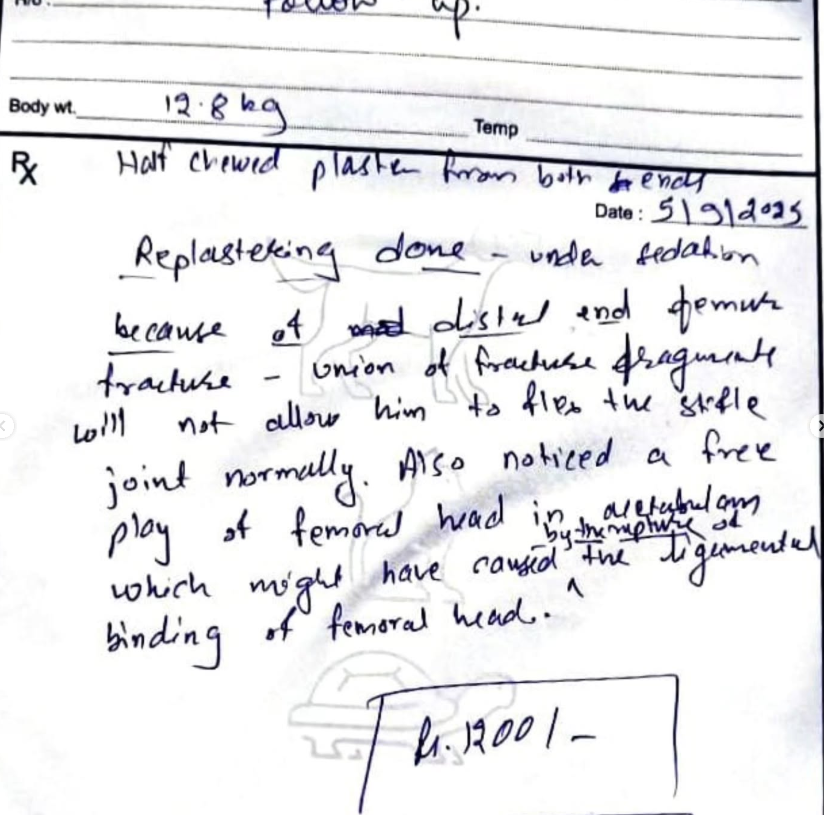 Follow up.
Body wt. 12.8 kg
Temp
Rx Half chewed plaster from both ends
Date : 5/9/2025
Replastering done - under sedation
because of distal end femur
fracture - union of fracture fragments
will not allow him to flex the stifle
joint normally. Also noticed a free
play of femoral head in acetabulam
by the rupture of
which might have caused ^ the ligemental
binding of femoral head.
Rs. 1200/-